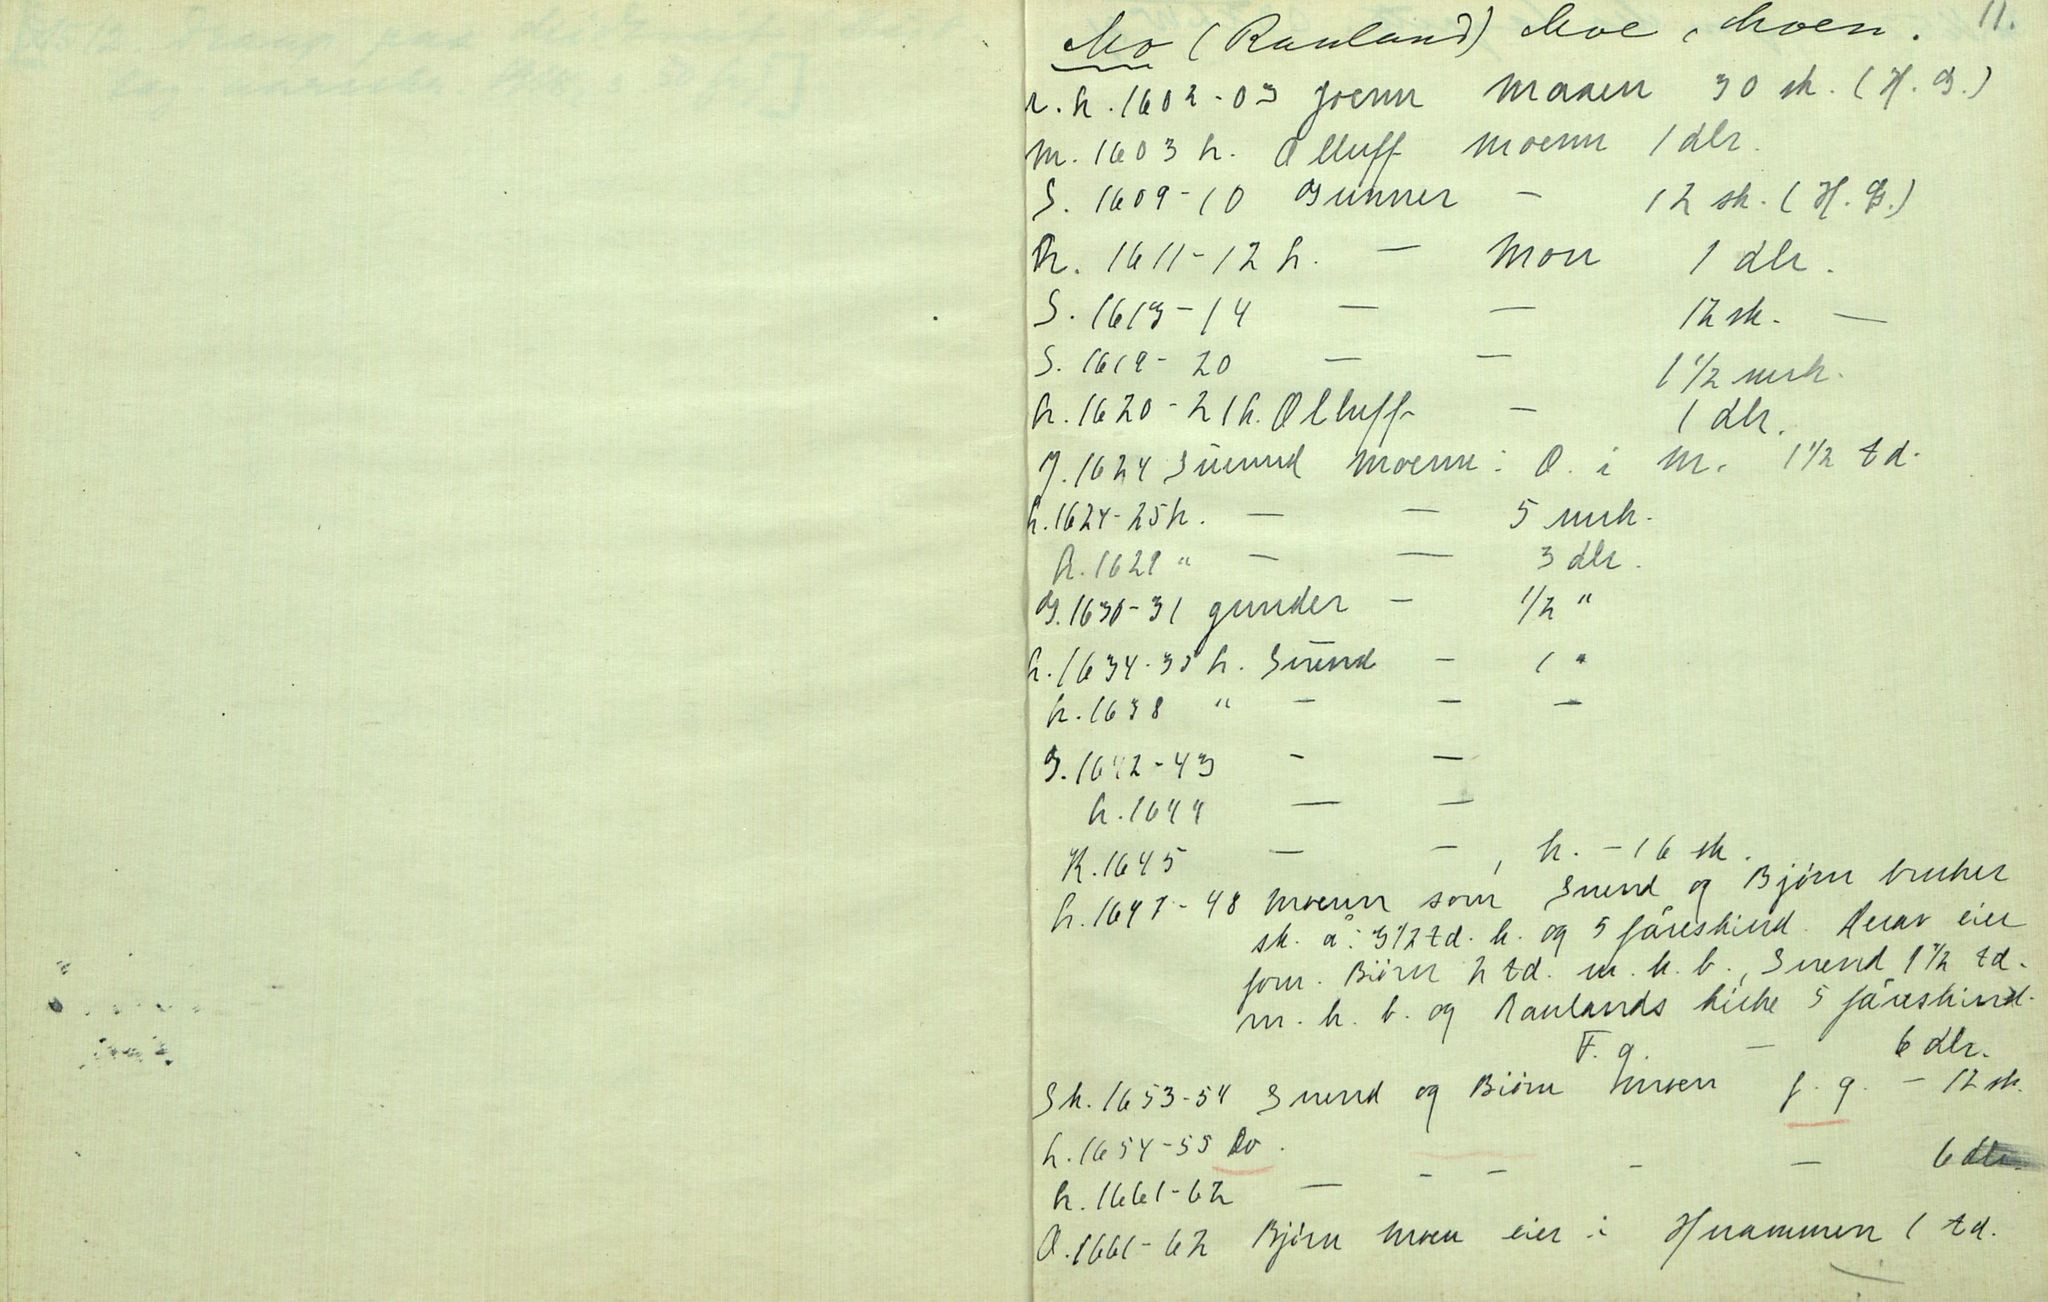 11.
Mo (Rauland) Moe, Moen.
r. h. 1602-03 Joenn Moaen 30 sk. (H. G.)
M. 1603 h. Olluff Moenn 1 dlr.
S. 1609-10 Gunner — 12 sk. (H. G.)
R. 1611-12 h. — Mon 1 dlr.
S. 1613-14 — — 12 sk. —
S. 1619-20 — — 1 1/2 mrk.
h. 1620-21 h. Olluff — 1 dlr.
J. 1624 Suennd Moenn: O. i M. 1 1/2 td.
h. 1624-25 h. — — 5 mrk.
R. 1629 " — — 3 dlr.
G. 1630-31 gunder — 1/2 "
h. 1634-35 h. Suend — 1 "
h. 1638 " — — —
G. 1642-43 — —
h. 1644 — —
K. 1645 — — , h. - 16 sk.
h. 1647-48 Moenn som Suend og Bjørn bruker
sk. a: 3 1/2 td. k. og 5 fåreskind. Derav eier
forn. Biørn 2 td. m. k. b., Suend 1 1/2 td.
m. k. b. og Raulands kirke 5 fåreskind.
F. g. — 6 dlr.
Sk. 1653-54 Suend og Biørn Moen f. g. - 12 sk.
h. 1654-55 Do.
h. 1661-62 — — — — — 6 dlr.
O. 1661-62 Bjørn Moen eier i Hnammen 1 td.